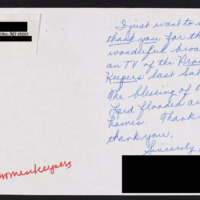 I just want to s
thank you for th
wonderful broa
on TV of the Prom
Keepers last Sat
The blessing of t
Lord flooded ou
homes. Thank
thank you.
Sincerely,
womenkeepers